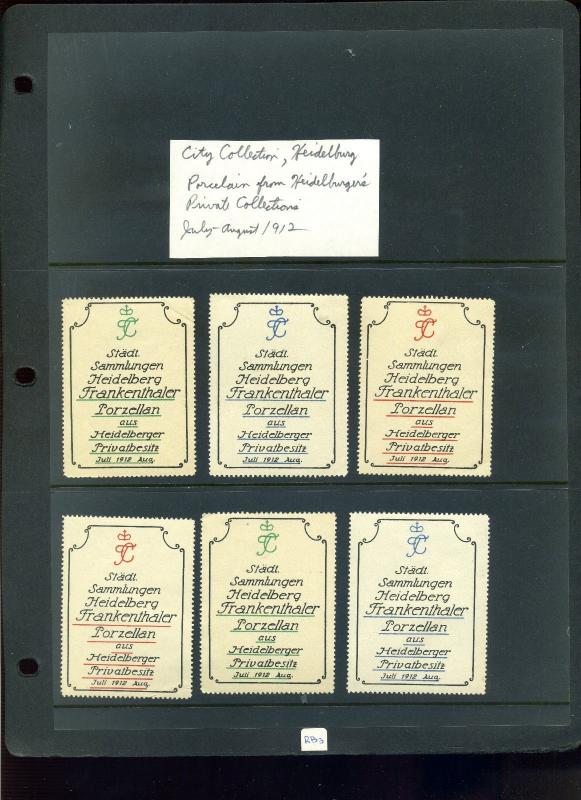 City Collection, Heidelburg
Porcelain from Heidelburger's
Private Collections
July-August 1912
Städt.
Sammlungen
Heidelberg
Frankenthaler
Porzellan
aus
Heidelberger
Privatbesitz
Juli 1912 Aug.
Städt.
Sammlungen
Heidelberg
Frankenthaler
Porzellan
aus
Heidelberger
Privatbesitz
Juli 1912 Aug.
Städt.
Sammlungen
Heidelberg
Frankenthaler
Porzellan
aus
Heidelberger
Privatbesitz
Juli 1912 Aug.
Städt.
Sammlungen
Heidelberg
Frankenthaler
Porzellan
aus
Heidelberger
Privatbesitz
Juli 1912 Aug.
Städt.
Sammlungen
Heidelberg
Frankenthaler
Porzellan
aus
Heidelberger
Privatbesitz
Juli 1912 Aug.
Städt.
Sammlungen
Heidelberg
Frankenthaler
Porzellan
aus
Heidelberger
Privatbesitz
Juli 1912 Aug.